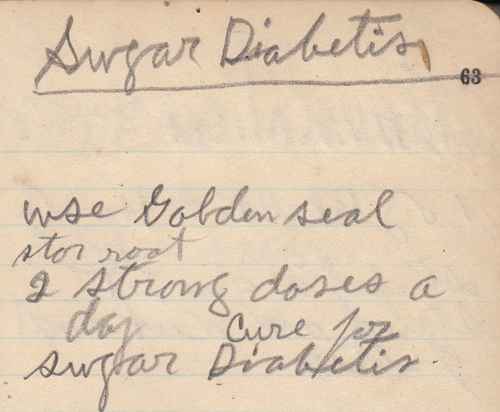 Sugar Diabetis
63
use Golden seal
stor root
2 strong doses a
day cure for
sugar Diabetis.